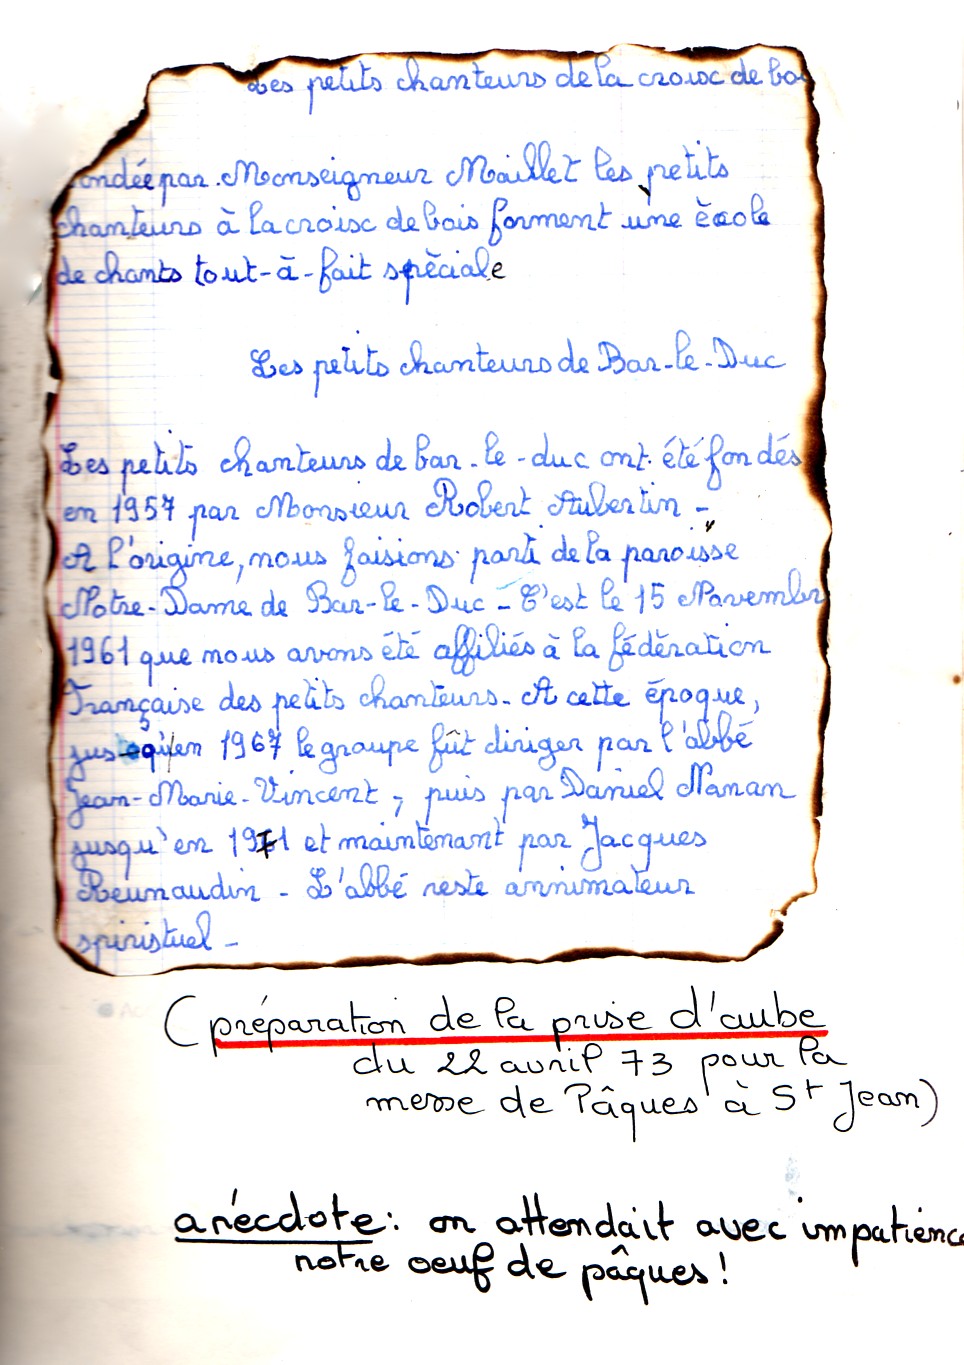 Les petits chanteurs de la croisc de bo
ondée par Monseigneur Maillet les petits
chanteurs à la croisc de bois forment une ècole
de chants tout-à-fait spèciale
Les petits chanteurs de Bar-le-Duc
Les petits chanteurs de bar-le-duc ont été fondés
en 1957 par Monsieur Robert Aubertin -
A l'origine, nous faisions parti de la paroisse
Notre-Dame de Bar-le-Duc - C'est le 15 Novembr
1961 que nous avons été affiliés à la fédèration
Française des petits chanteurs. A cette époque,
jusqu'en 1967 le groupe fût diriger par l'abbé
Jean-Marie-Vincent, puis par Daniel Nanan
jusqu'en 1971 et maintenant par Jacques
Reunaudin - L'abbé reste annimateur
spiristuel -
(préparation de la prise d'aube
du 22 avril 73 pour la
messe de Pâques à St Jean)
anecdote: on attendait avec impatienc
notre oeuf de pâques!